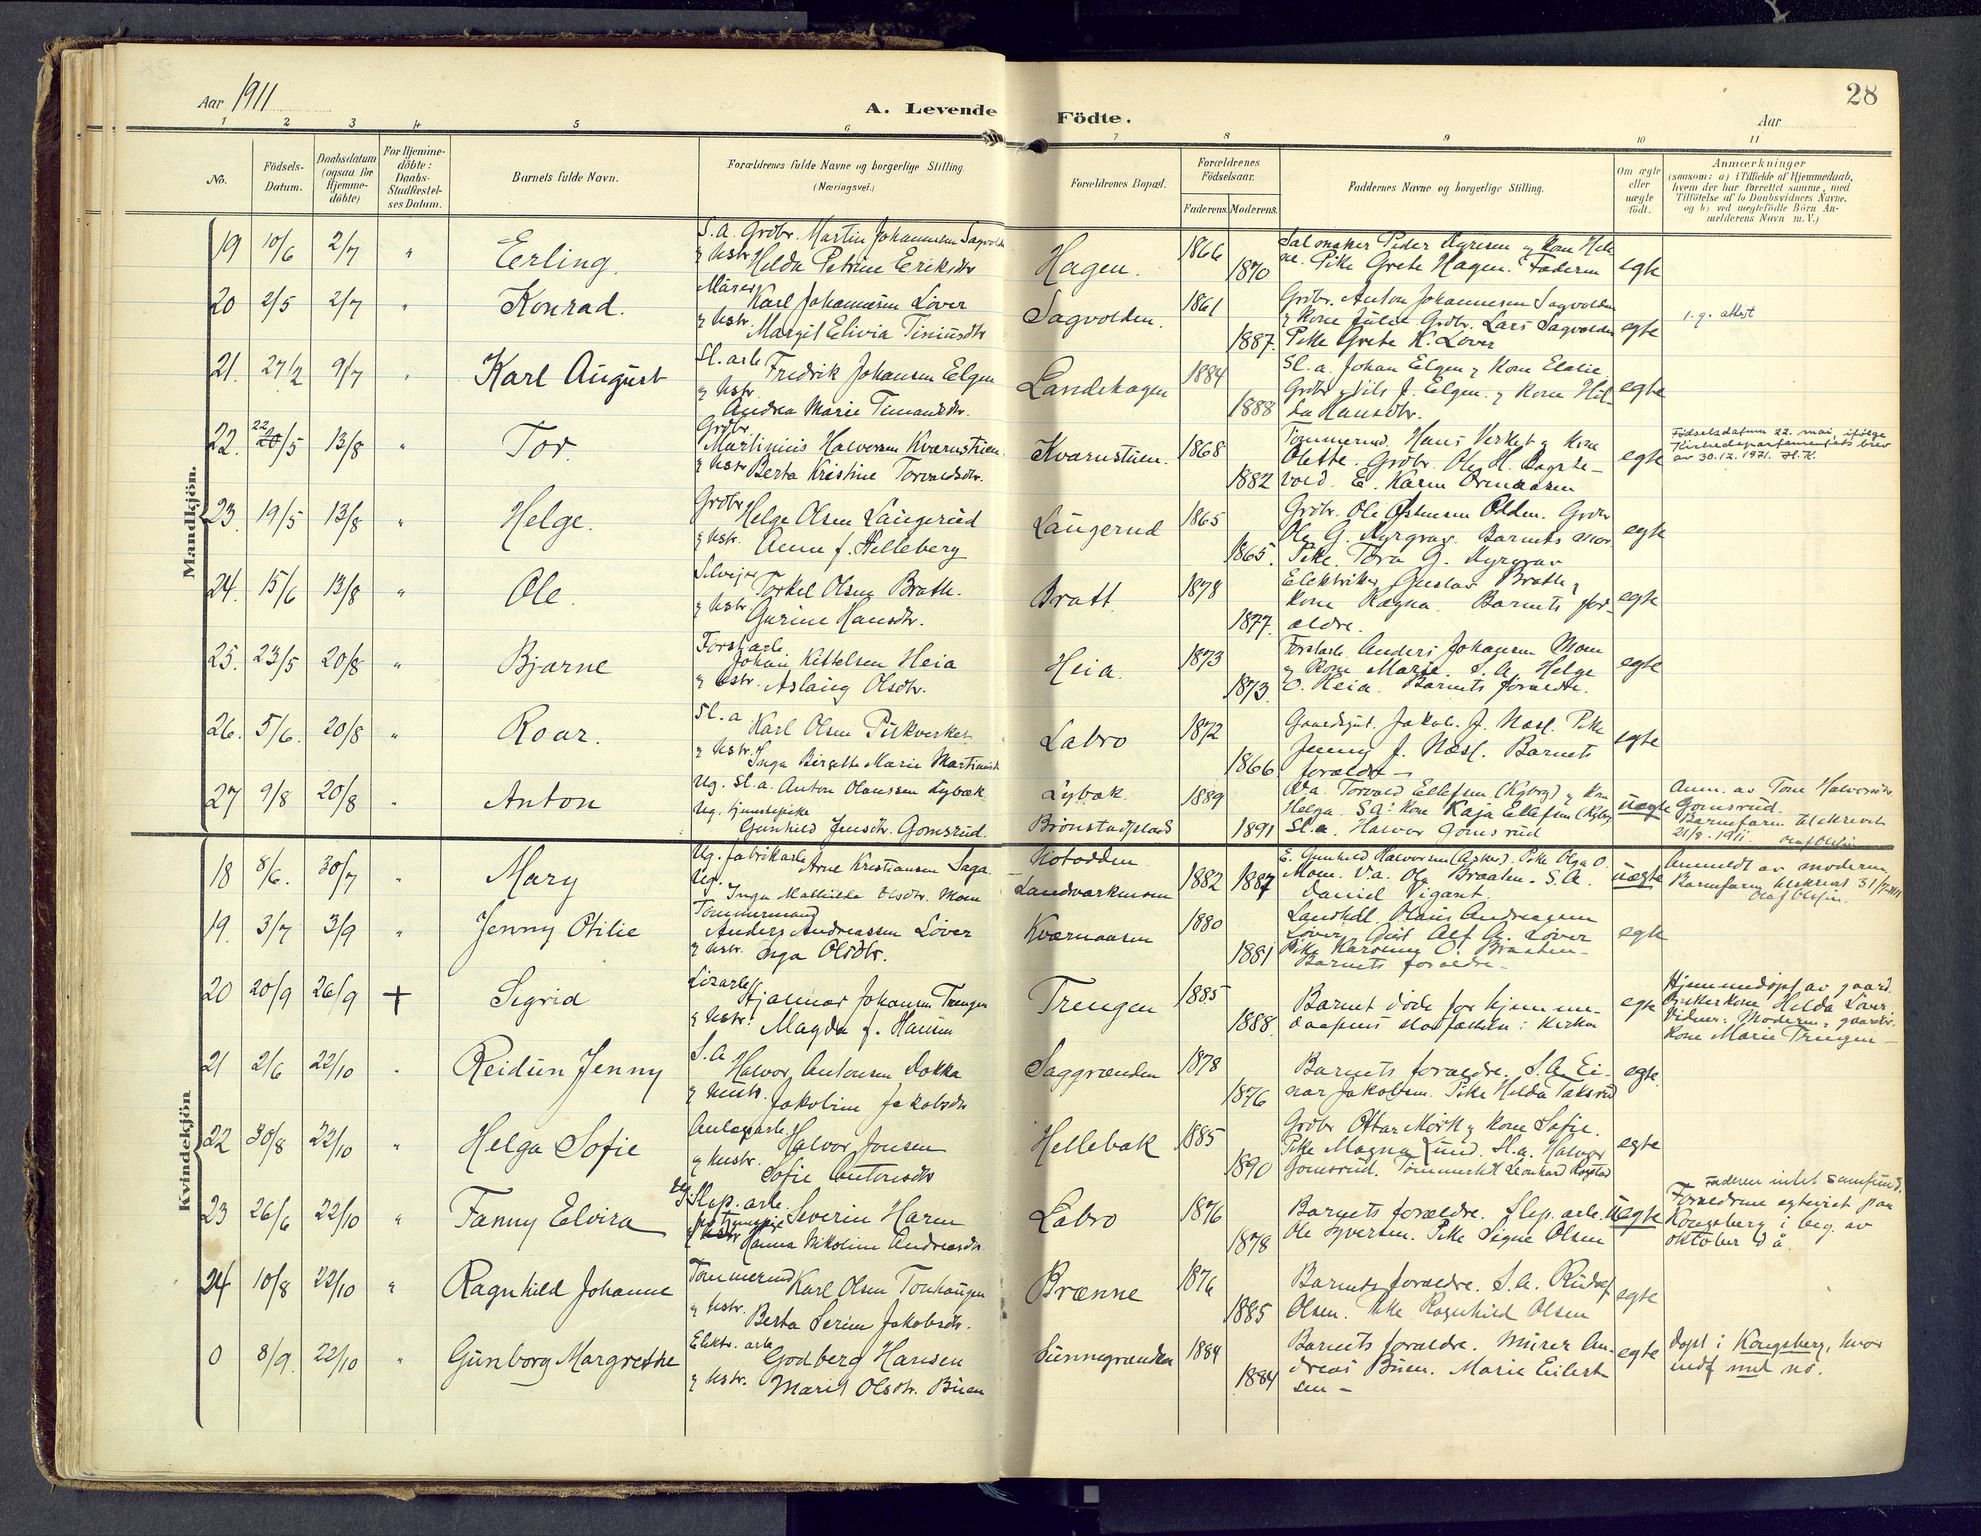 28
Aar 1911
A. Levende Födte.
Aar
1 2 3 4 5 6 7 8 9 10 11
No.
Födsels-Datum.
Daabsdatum (ogsaa for Hjemme-döbte)
For Hjemme-döbte: Daabs-Stadfæstel-ses Datum.
Barnets fulde Navn.
Forældrenes fulde Navne og borgerlige Stilling. (Næringsvei.)
Forældrenes Bopæl.
Forældrenes Födselsaar.
Faderens. Moderens.
Faddernes Navne og borgerlige Stilling.
Om ægte eller uægte födt.
Anmærkninger
(saasom: a) i Tilfælde af Hjemmedaab, hvem der har forrettet samme, med Tilföielse af to Daabsvidners Navne, og b) ved uægtefödte Börn An-melderens Navn m. V.)
Mandkjön.
19 10/6 2/7 " Erling.
S.a. Grdbr. Martin Johannesen Sagvolden
y hstr. Helda Petrine Eriksdtr
Hagen. 1866 1870
Salmaker Peder Myresen y kone Hele
ne. Pike Grete Hagen. Faderen
egte
20 2/5 2/7 " Konrad.
Murer Karl Johannesen Lover
y hstr. Margit Elivia Tiniusdtr
Sagvolden. 1861 1887.
Grdbr. Anton Johannesen Sagvolden
y kone Julie. Grdbr. Lars Sagvolden
Pike Grete K. Lover
egte
1. g. attest
21. 27/2 9/7 " Karl August
Sl. arb. Fredrik Johansen Elgen
y hstr. Andrea Marie Timandsdtr.
Landshagen 1884 1888
Sl. a. Johan Elgen y kone Elelie.
Grdbr. Nils J. Elgen. y kone Hil
da Hansdtr.
egte
22. 22 20/5 13/8 " Tor.
Grdbr. Martinius Halvorsen Kvernstuen
y hstr Berta Kristine Torvaldsdtr.
Kvernstuen. 1868 1882
Tömmermd. Hans Verket y kone
Olette. Grdbr. Ole H. Bagste-
vold. E. Karen Ormaasen
egte
Födselsdatum 22. mai, ifölge
Kirkedepartementets brev
av 30.12.1971. H.K.
23. 19/5 13/8 " Helge.
Grdbr Helge Olsen Laugerud
y hstr. Anne f. Helleberg
Laugerud 1865 1865.
Grdbr. Ole Östensen Olden. Grdbr
Ole G. Myrgrav. Barnets mor.
Pike. Tora G. Myrgrav
egte
24. 15/6 13/8 " Ole.
Selveier Torkel Olsen Bratt.
y hstr. Gurine Hansdtr.
Bratt. 1878 1877.
Elektriker Gustav Bratt y
kone Ragna. Barnets for-
ældre.
egte
25. 23/5 20/8 " Bjarne
Forstarb. Johan Kittelsen Heia
y hstr. Aslaug Olsdtr.
Heia. 1873 1873
Forstarb. Anders Johansen Moen
y kone Marie. S.A. Helge
O. Heia. Barnets forældre.
egte
26. 5/6. 20/8 " Roar.
Sl. a. Karl Olsen Pukverket
y hstr. Inga Birgitte Marie Martinusdtr
Labro 1872 1866
Gaardsgut. Jakob. J. Næsl. Pike
Jenny J. Næsl. Barnets
forældre –
egte
27 9/8 20/8 " Anton
Ug. sl.a. Anton Olaussen Lybæk.
Ug. tjenestepike Gunhild Jensdtr. Gomsrud.
Lybæk. Brönstadplads 1889 1891
V.a. Torvald Ellefsen (Kgbrg) y kone
Helga. S.a. kone Kaja Ellefsen (Kgbrg)
Sl.a. Halvor Gomsrud
uegte
Anm. av Tone Halvorsdtr
Gomsrud.
Barnefaren utskrevet
21/8 - 1911. Olaf Olsen
Kvindekjön
18 8/6. 30/7 " Mary
Ug. fabrikarb. Arne Kristiansen Saga
Ug. Inga Mathilde Olsdtr. Moen
Notodden. Landværkmoen 1882 1887
E. Gunhild Halvorsen (Asker). Pike Olga O.
Moen. V.a. Ole Braaten. S.A.
Daniel Vigant.
uegte
Anmeldt av moderen
Barnefaren utskrevet 31/7-1911
Olaf Olsen.
19. 3/7 3/9 " Jenny Otilie
Tömmermand Anders Andreassen Löver
y hstr. Inga Olsdtr.
Kvernaasen 1880 1881
Landhdl. Olaus Andreassen
Löver, Gut Alf A. Löver
Pike Karoline O. Braaten–
Barnets forældre –
egte
20 20/9 26/9 + Sigrid
Lisarb. Hjalmar Johansen Trengen
y hstr. Magda f. Hansen
Trengen 1885 1888
Barnet döde för hjemme-
daapens stadfæstelse i kirken
egte
Hjemmedöpt av gaard
brukerkone Helda Löver.
Vidner: Moderen, gaardbr.
kone Marie Trengen –
21 2/6 22/10 " Reidun Jenny
S.A. Halvor Antonsen Dokka
y hustr. Jakobine Jakobsdtr
Saggrænden 1878 1876
Barnets forældre. S.A. Ei-
nar Jakobsen. Pike Helda Taksrud
egte.
22 30/8 22/10 " Helga Sofie
Anlægsarb. Halvor Jonsen
y hustr. Sofie Antonsdtr
Hellebæk 1885 1890
Grdbr Ottar Mörk y kone Sofie.
Pike Magna Lund. Sl.a. Halvor
Gomsrud. Tömmerhdl Leonhard Kogstad
egte
23 26/6 22/10 " Fanny Elvira
Ug Slep. arb. Severin Haren
Hanna Nikoline Andreasdtr.
Labro 1876 1878
Barnets forældre. Slep. arb.
Ole Syversen. Pike Signe Olsen
uegte
Faderen intet samfund.
Forældrene egteviet paa
Kongsberg i beg. av
oktober d å.
24 10/8 22/10 " Ragnhild Johanne
Tömmermd Karl Olsen Tonhaugen
y hstr. Berta Serine Jakobsdtr.
Brænne 1876 1885
Barnets forældre. S.a. Rudolf
Olsen. Pike Ragnhild Olsen
egte
0 8/9. 22/10 " Gunborg Margrethe
Elektr. arb. Godberg Hansen
y hstr. Marit Olsdtr. Buen
Sunnegrænden 1884 1884
Barnets forældre. Murer An-
dreas Buen. Marie Eilert
sen –
egte
döpt i Kongsberg, hvor
indf med no.